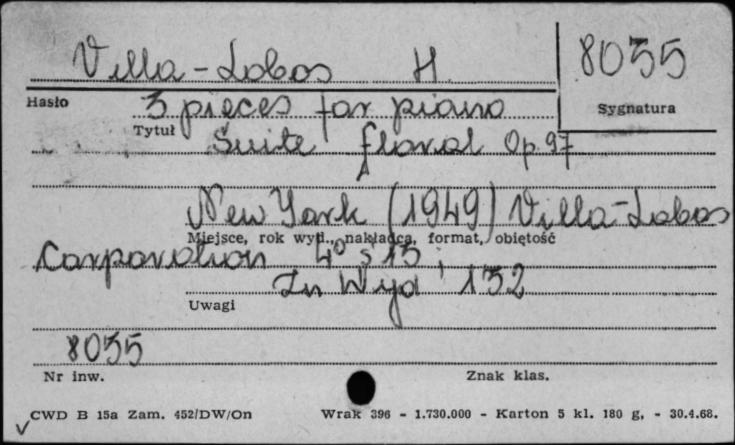 Villa-Lobos H. 8055
Hasło 3 pieces for piano Sygnatura
Tytuł Suite floral Op. 97
New York (1949) Villa-Lobos
Miejsce, rok wyd., nakładca, format, objętość
Corporation 4° s 15
In Wyd 132
Uwagi
8055
Nr inw. Znak klas.
CWD B 15a Zam. 452/DW/On Wrak 396 - 1.730.000 - Karton 5 kl. 180 g, - 30.4.68.